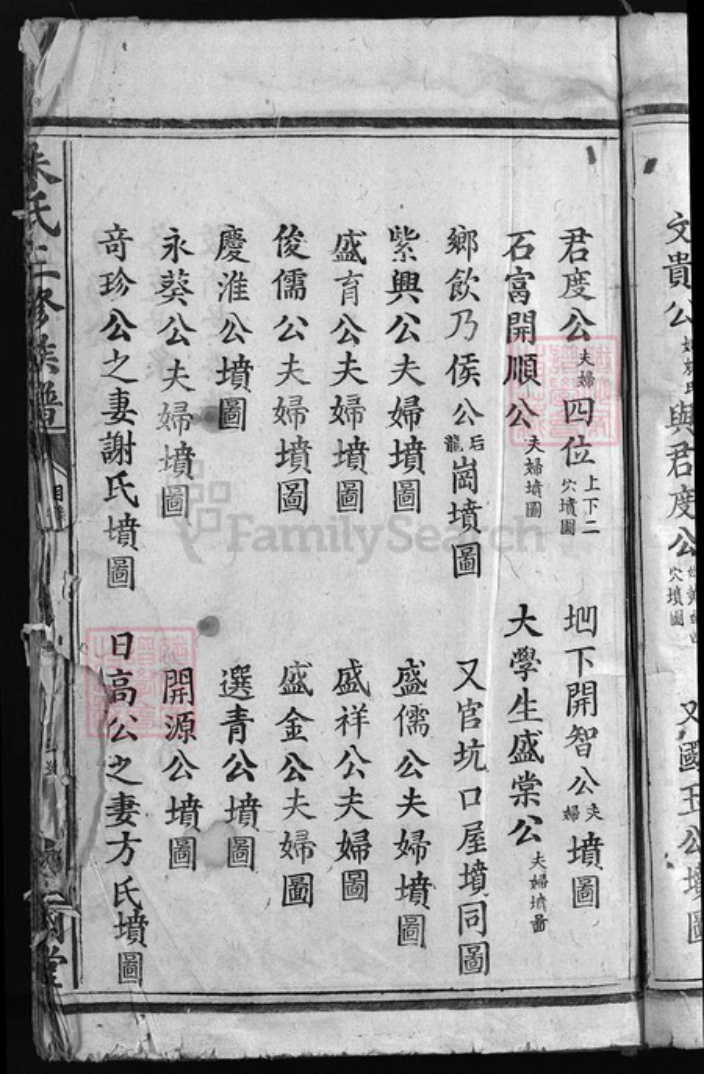 文貴公
與君度公
穴墳圖
又國玉公墳圖
君度公夫婦四位上下二穴墳圖
地下開智公夫婦墳圖
石富開順公夫婦墳圖
大學生盛棠公夫婦墳圖
鄉飲乃侯公后龍崗墳圖
又官坑口屋墳同圖
紫興公夫婦墳圖
盛儒公夫婦墳圖
盛育公夫婦墳圖
盛祥公夫婦圖
俊儒公夫婦墳圖
盛金公夫婦圖
慶淮公墳圖
選青公墳圖
永葵公夫婦墳圖
開源公墳圖
奇珍公之妻謝氏墳圖
日高公之妻方氏墳圖
朱氏三修族譜
FamilySearch